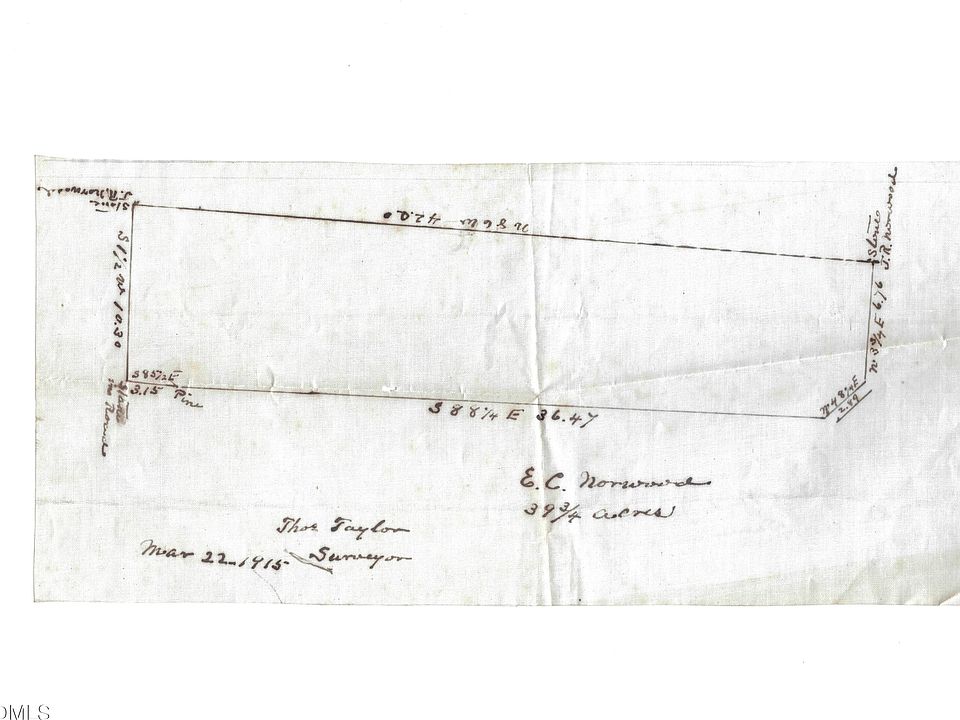 J. R. Norwood
Stone
N 86 W 42.00
Stone
J. R. Norwood
S 1 1/2 W 10.30
N 3 3/4 E 6.76
S 85 1/2 E
3.15
Pine
in Road
S 88 1/4 E 36.47
N 48 1/4 E
2.89
E. C. Norwood
39 3/4 acres
Thos Taylor
Surveyor
Mar 22 - 1915
OMLS